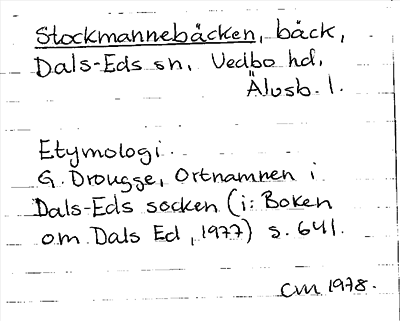 Stockmannebäcken, bäck,
Dals-Eds sn, Vedbo hd,
Älvsb. l.
Etymologi.
G. Drougge, Ortnamnen i
Dals-Eds socken (i: Boken
om Dals Ed, 1977) s. 641.
CM 1978.